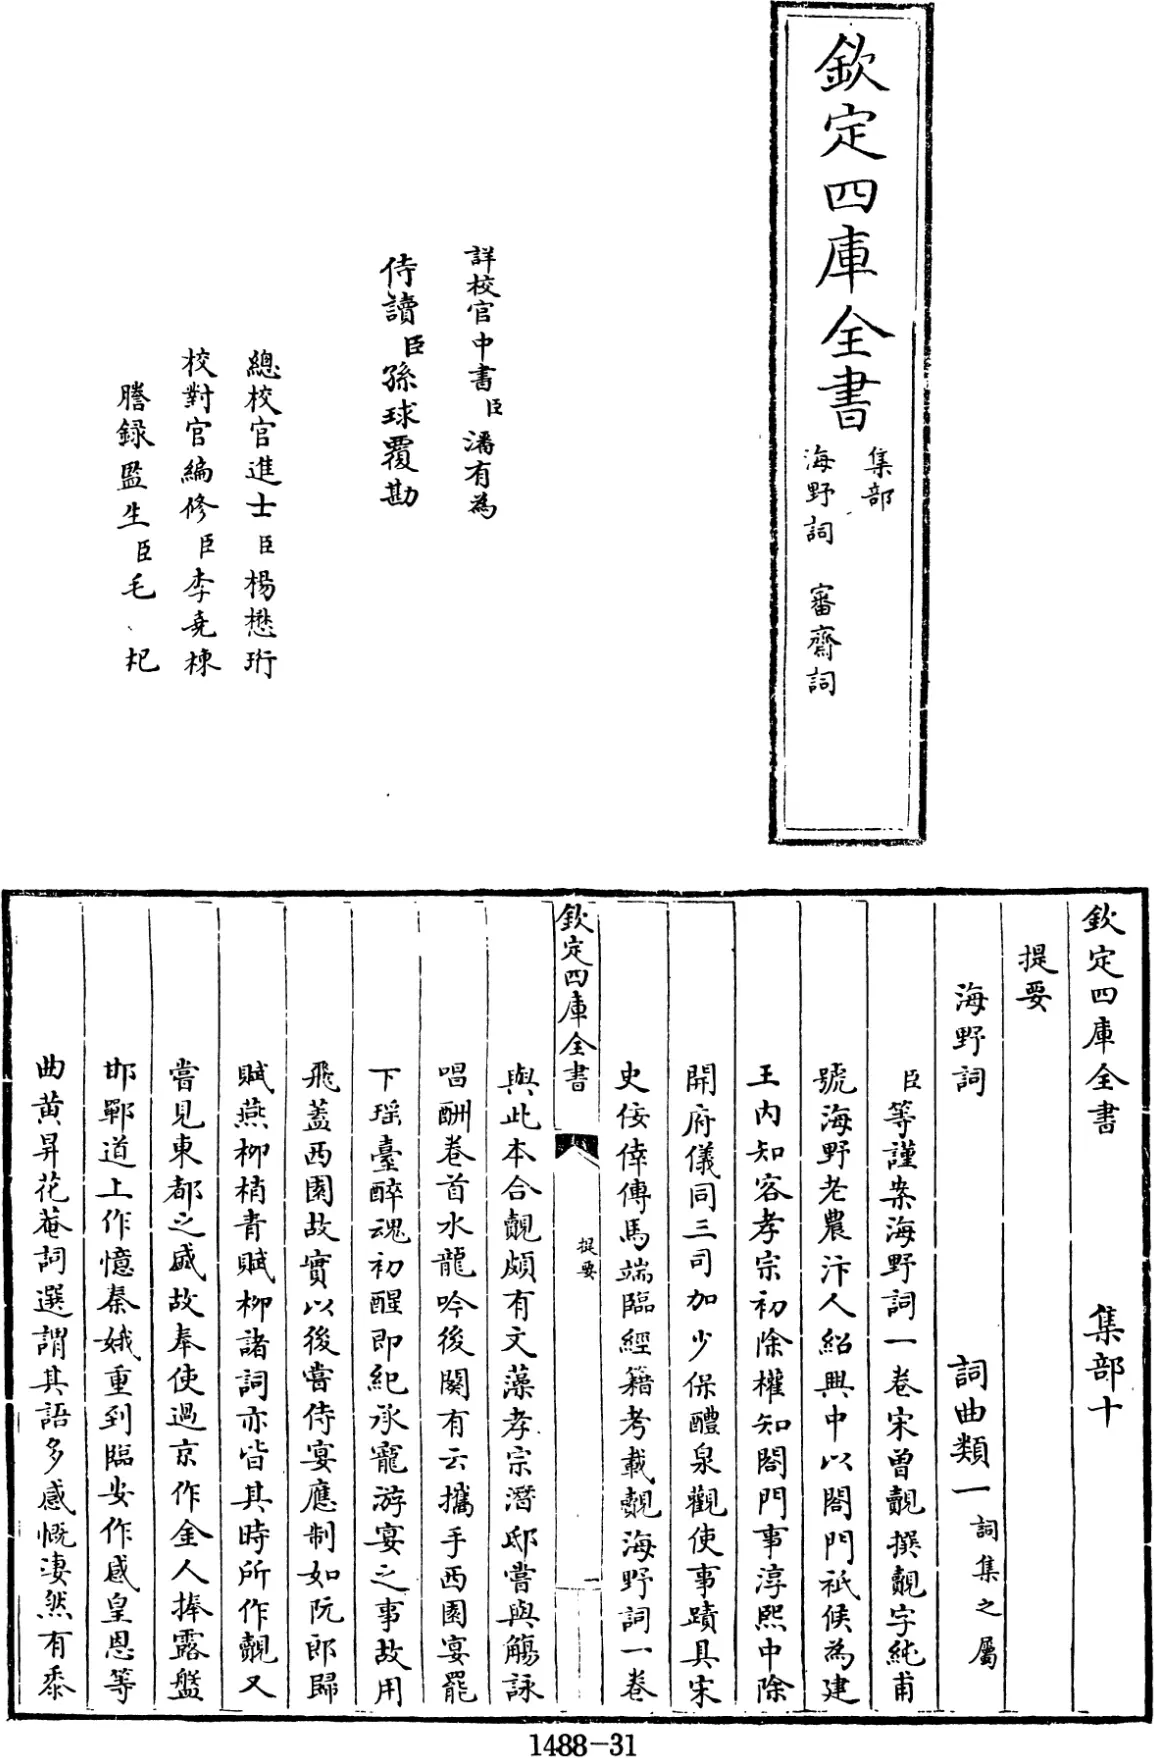 欽定四庫全書
集部
海野詞 審齋詞
詳校官中書臣潘有為
侍讀臣孫球覆勘
總校官進士臣楊懋珩
校對官編修臣李堯棟
謄録監生臣毛杞
欽定四庫全書 集部十
提要
海野詞 詞曲類一詞集之屬
臣等謹案海野詞一卷宋曾覿撰覿字純甫
號海野老農汴人紹興中以閤門祗候為建
王内知客孝宗初除權知閤門事淳熙中除
開府儀同三司加少保醴泉觀使事蹟具宋
史佞倖傳馬端臨經籍考載覿海野詞一卷
欽定四庫全書 提要 一
與此本合覿頗有文藻孝宗潛邸嘗與觴詠
唱酬卷首水龍吟後闋有云攜手西園宴罷
下瑶臺醉魂初醒即紀承寵游宴之事故用
飛蓋西園故實以後嘗侍宴應制如阮郎歸
賦燕柳梢青賦柳諸詞亦皆其時所作覿又
嘗見東都之盛故奉使過京作金人捧露盤
邯鄲道上作憶秦娥重到臨安作感皇恩等
曲黄昇花菴詞選謂其語多感慨淒然有黍
1488-31